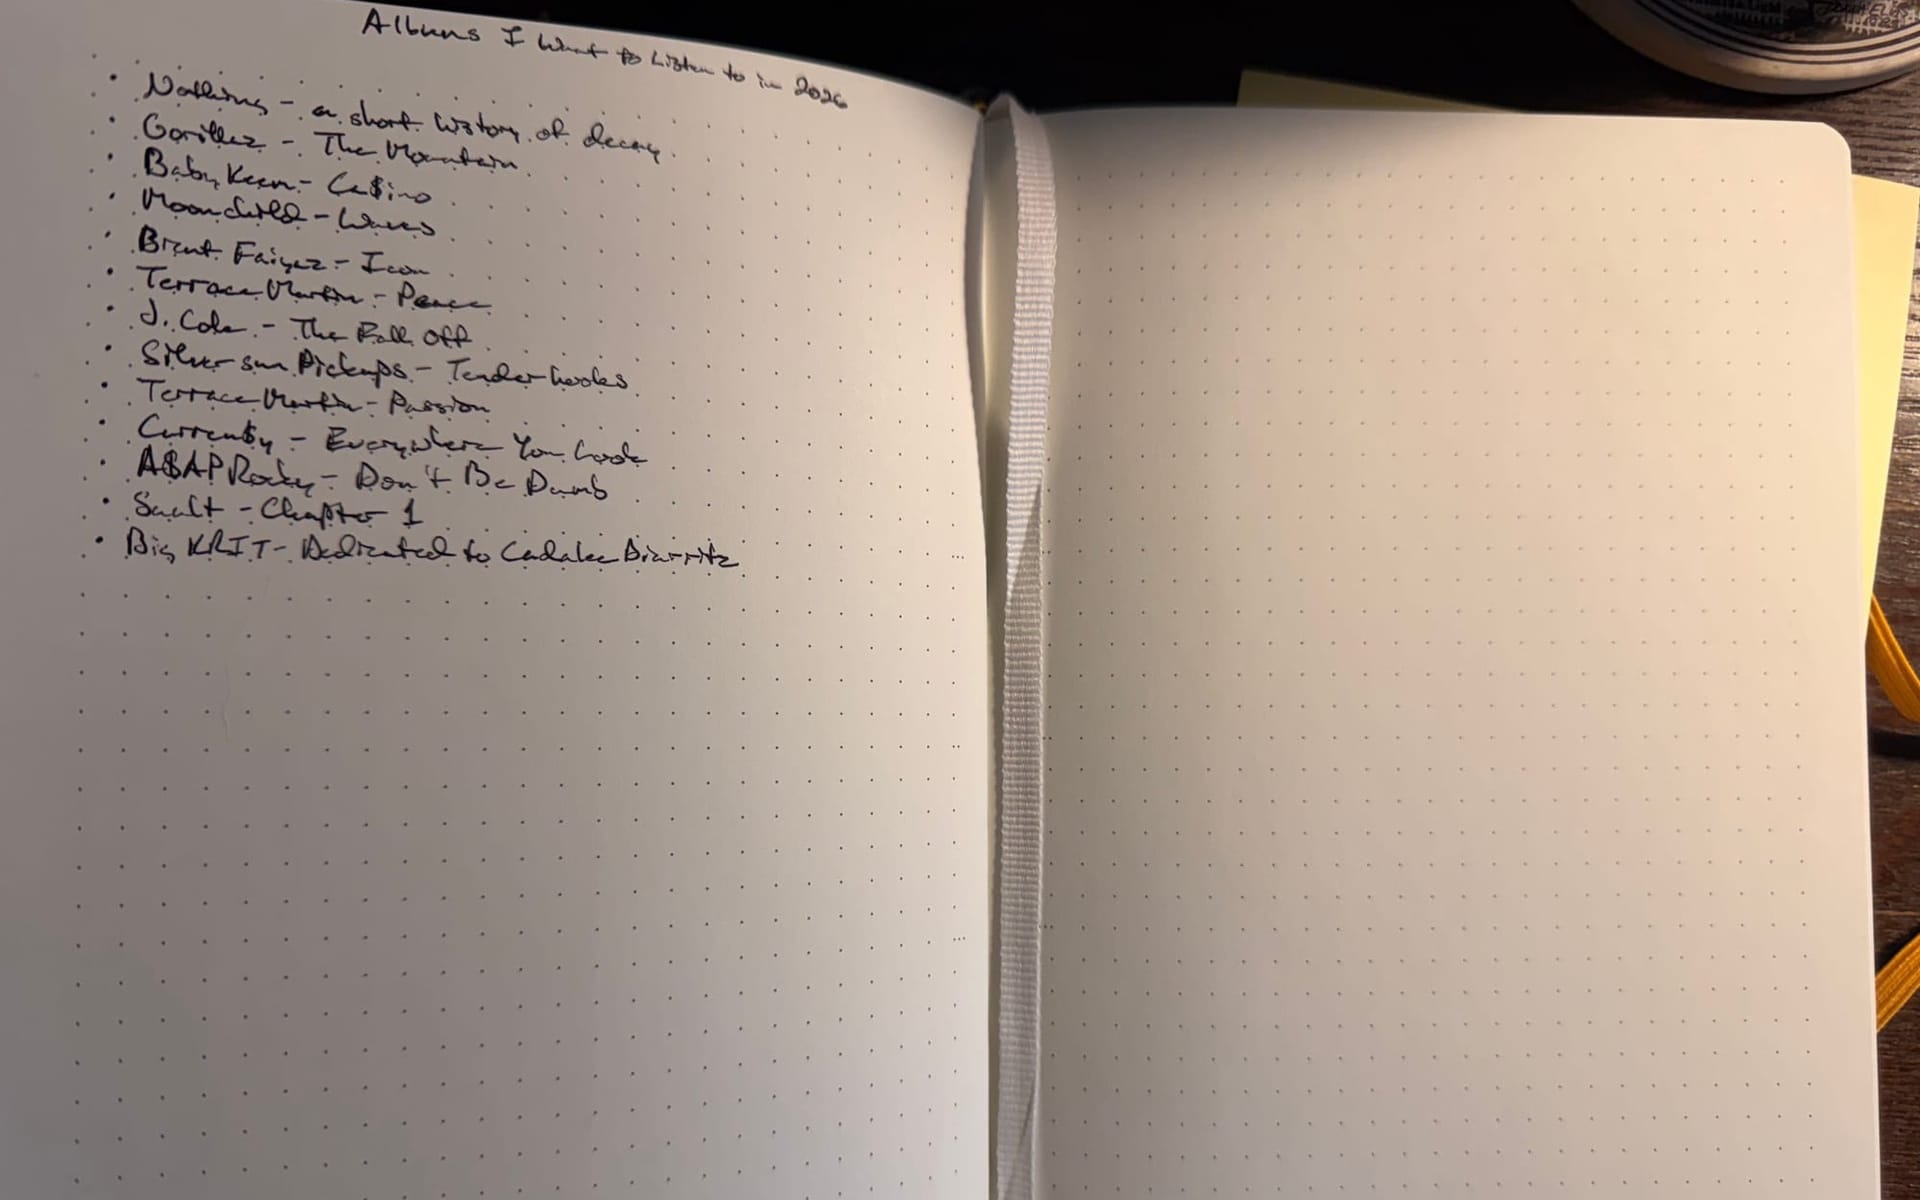 Albums I Want to Listen to in 2026
• Nothing - a short history of decay
• Gorillaz - The Mountain
• Baby Keem - Ca$ino
• Moonchild - Waves
• Brent Faiyaz - Icon
• Terrace Martin - Peace
• J. Cole - The Fall Off
• Silversun Pickups - Tenderhooks
• Terrace Martin - Passion
• Curren$y - Everywhere You Look
• A$AP Rocky - Don't Be Dumb
• Sault - Chapter 1
• Big KRIT - Dedicated to Cadalee Biarritz